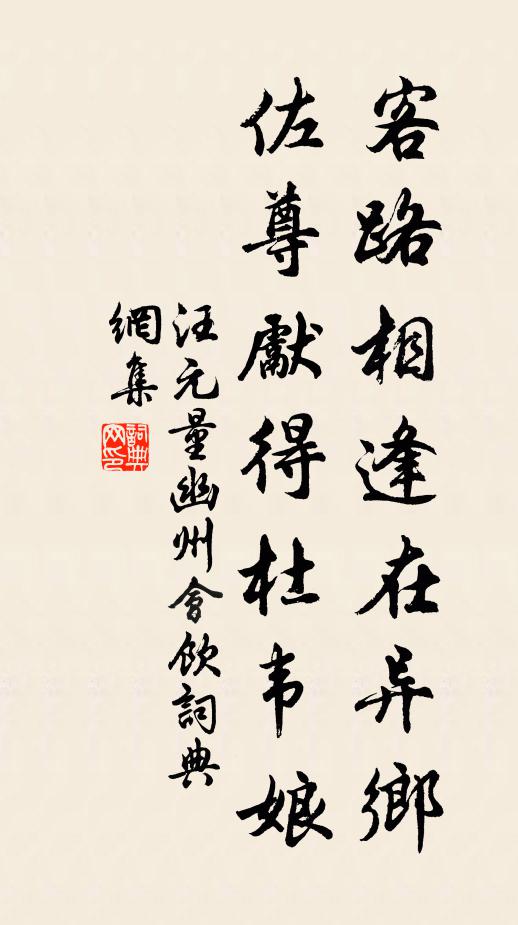 客路相逢在异鄉
佐尊獻得杜韦娘
汪元量幽州會飲詞典
網集
詞典
网印